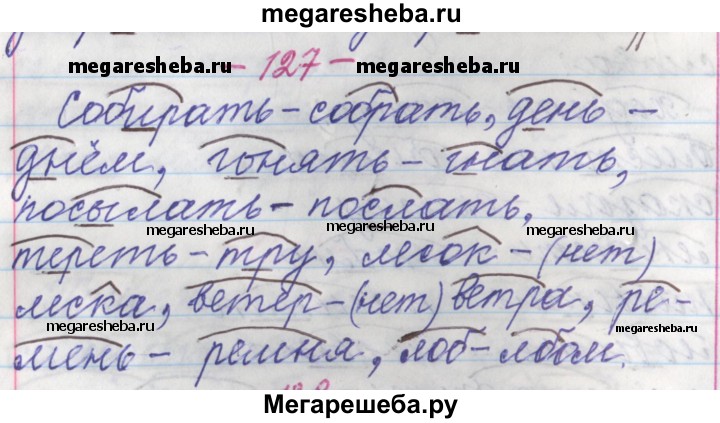 megaresheba.ru
megaresheba.ru - 127 - megaresheba.ru
Собирать - собрать, день -
днём, гонять - гнать,
посылать - послать,
megaresheba.ru megaresheba.ru
тереть - тру, лесок - (нет)
леска, ветер - (нет) ветра, ре-
megaresheba.ru megaresheba.ru megaresheba.ru
мень - ремня, лоб - лбом.
Мегарешеба.ру